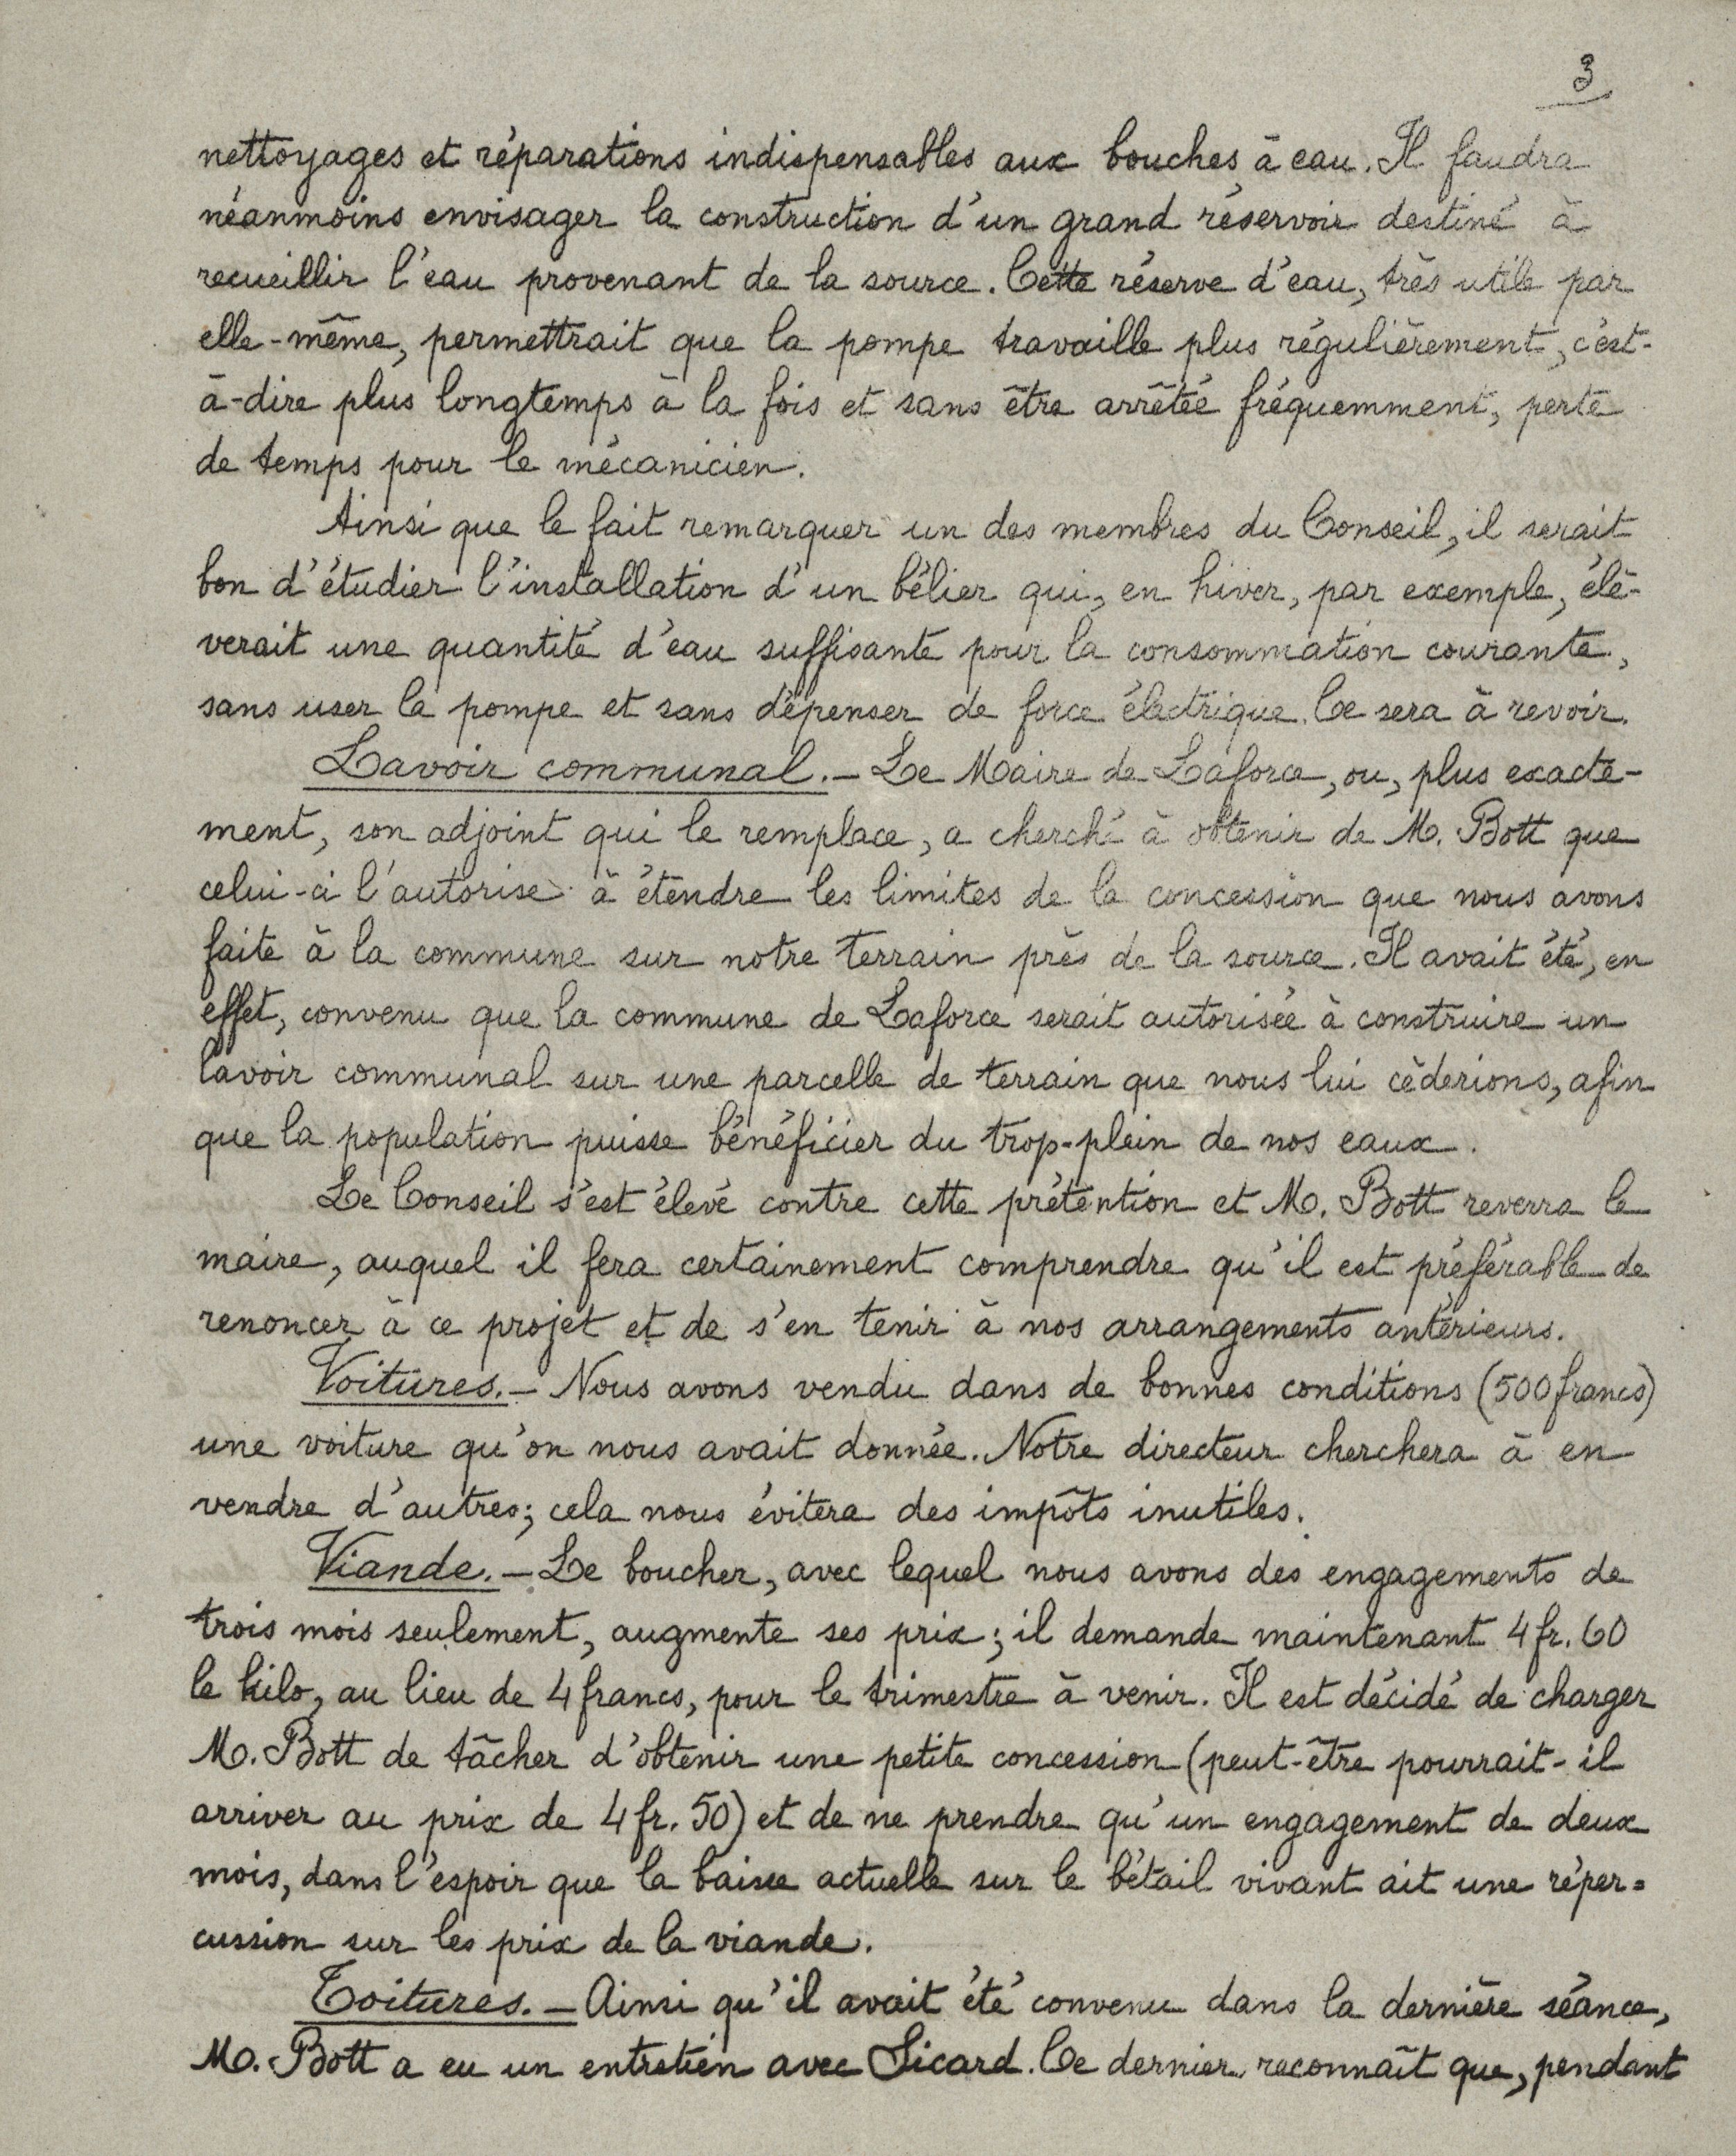 3
nettoyages et réparations indispensables aux bouches à eau. Il faudra
néanmoins envisager la construction d'un grand réservoir destiné à
recueillir l'eau provenant de la source. Cette réserve d'eau, très utile par
elle-même, permettrait que la pompe travaille plus régulièrement, c'est-
à-dire plus longtemps à la fois et sans être arrêtée fréquemment, perte
de temps pour le mécanicien.
Ainsi que le fait remarquer un des membres du Conseil, il serait
bon d'étudier l'installation d'un bélier qui, en hiver, par exemple, élè-
verait une quantité d'eau suffisante pour la consommation courante,
sans user la pompe et sans dépenser de force électrique. Ce sera à revoir.
Lavoir communal. - Le Maire de Laforce, ou, plus exacte-
ment, son adjoint qui le remplace, a cherché à obtenir de M. Bott que
celui-ci l'autorise à étendre les limites de la concession que nous avons
faite à la commune sur notre terrain près de la source. Il avait été, en
effet, convenu que la commune de Laforce serait autorisée à construire un
lavoir communal sur une parcelle de terrain que nous lui cèderions, afin
que la population puisse bénéficier du trop-plein de nos eaux.
Le Conseil s'est élevé contre cette prétention et M. Bott reverra le
maire, auquel il fera certainement comprendre qu'il est préférable de
renoncer à ce projet et de s'en tenir à nos arrangements antérieurs.
Voitures. - Nous avons vendu dans de bonnes conditions (500 francs)
une voiture qu'on nous avait donnée. Notre directeur cherchera à en
vendre d'autres; cela nous évitera des impôts inutiles.
Viande. - Le boucher, avec lequel nous avons des engagements de
trois mois seulement, augmente ses prix; il demande maintenant 4 fr. 60
le kilo, au lieu de 4 francs, pour le trimestre à venir. Il est décidé de charger
M. Bott de tâcher d'obtenir une petite concession (peut-être pourrait-il
arriver au prix de 4 fr. 50) et de ne prendre qu'un engagement de deux
mois, dans l'espoir que la baisse actuelle sur le bétail vivant ait une réper=
cussion sur les prix de la viande.
Toitures. - Ainsi qu'il avait été convenu dans la dernière séance,
M. Bott a eu un entretien avec Sicard. Ce dernier reconnaît que, pendant